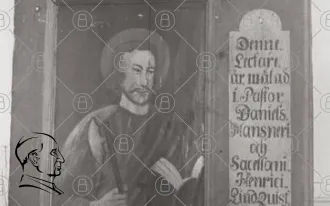 Denne
Lectare
är målad
i Pastor
Daniels
Hansneri
och
Sacellani
Henrici
LindQuist